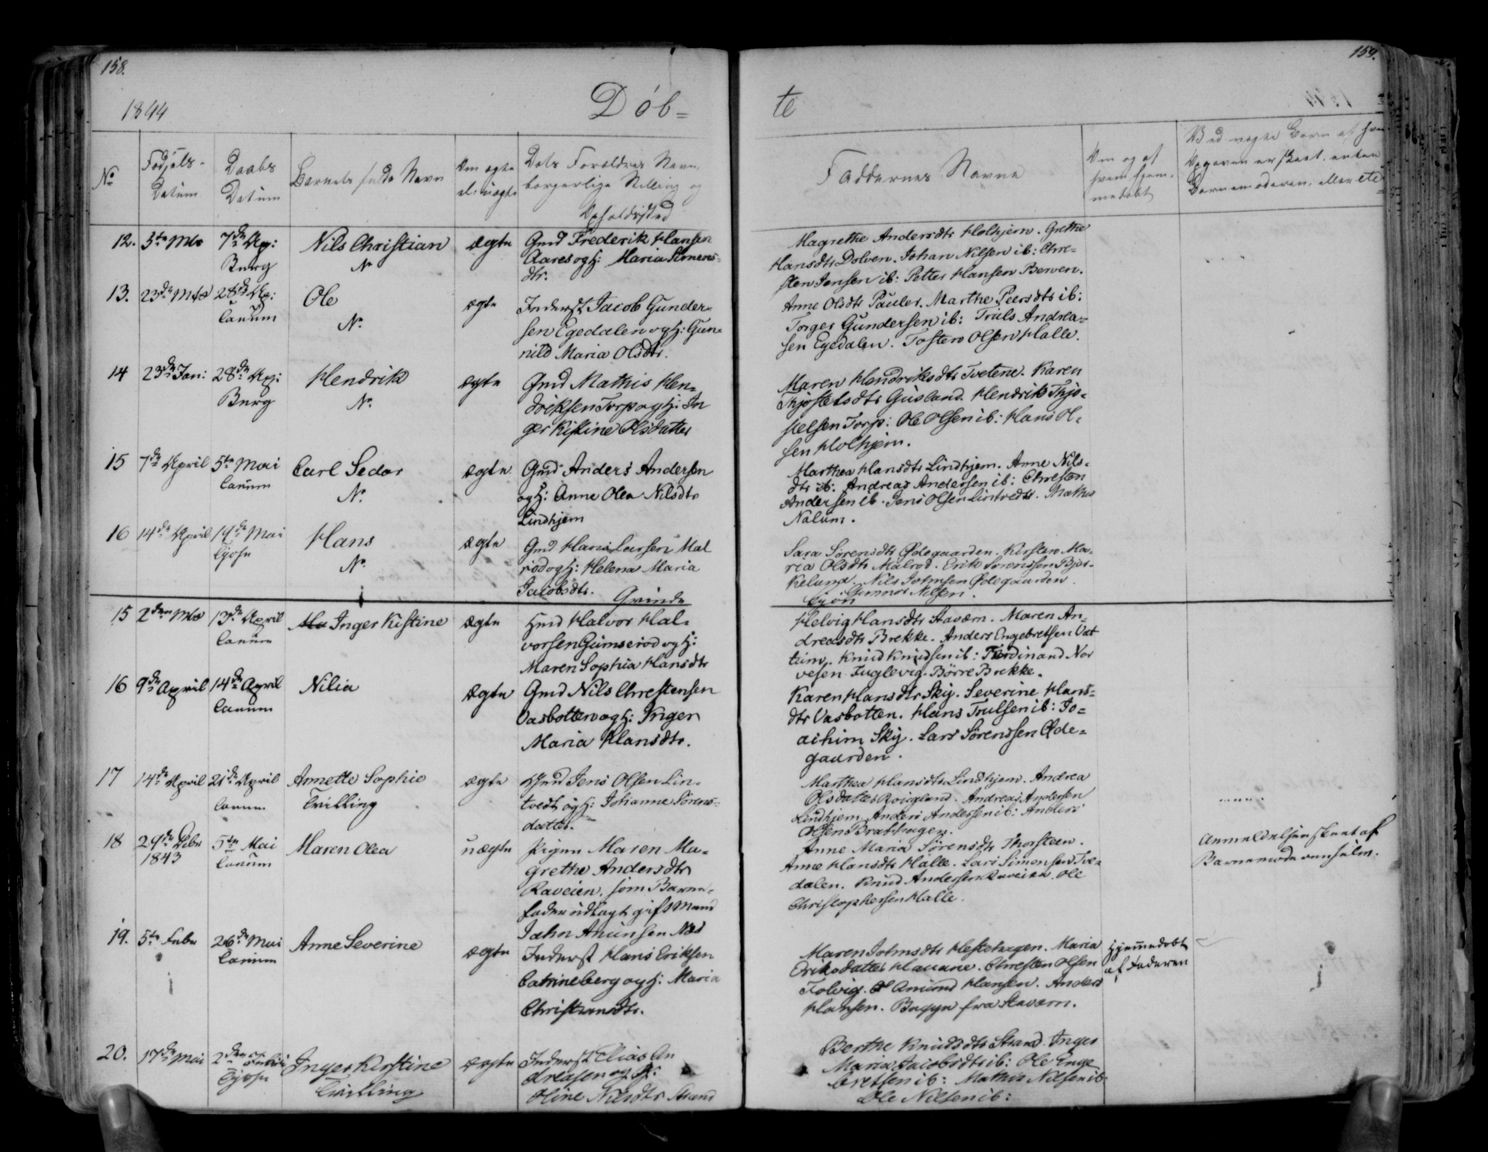 158.
1844
Döb=
No
Fødsels-
Datum
Daabs
Datum
Barnets fulde Navn
Om ægte
el. uægte
Dets Forældres Navn,
borgerlige Stilling og
Opholdssted
12.
5te Mts
7de Ap:
Berg
Nils Christian
N.
ægte
Gmd Frederik Hansen
Aares og H: Maria Simens-
dtr.
13.
23de Mts
28de Ap:
Tanum
Ole
N.
ægte
Inderst Jacob Gunder-
sen Egedalen og H: Gun-
nild Maria Olsdtr.
14
23de Jan:
28de Ap:
Berg
Hendrik
N.
ægte
Gmd Mathis Hen-
driksen Torp og H: In
ger Kistine Olsdatter
15
7de April
5te Mai
Tanum
Carl Sedor
N.
ægte
Gmd Anders Andersen
og H: Anne Olea Nilsdtr
Lindhjem
16
14de April
19de Mai
Hans
N.
ægte
Gmd Hans Larsen Mal
rød og H: Helena Maria
Jacobsdtr.
15
2den Mts
13de April
Tanum
Inger Kistine
ægte
Hmd Halvor Hal-
vorsen Gumserød og H:
Maren Sophia Hansdtr
16
9de April
14de April
Tanum
Nilia
ægte
Gmd Nils Chrestensen
Vasbotten og H: Inger
Maria Hansdtr.
17
14de April
21de April
Tanum
Annette Sophie
Tvilling
ægte
Jens Olsen Lin-
tvedt og H: Johanne Sørens-
datter
18
29de Debr
1843
5te Mai
Tanum
Maren Olea
uægte
Pigen Maren Ma-
grethe Andersdtr
Raveien, som Barne-
fader udlagt gift Mand
19.
5te Febr
26de Mai
Tanum
Anne Severine
ægte
Inderst Hans Eriksen
Catrineberg og H: Maria
Christensdtr.
20.
17de Mai
Inger Kirstine
Tvilling
ægte
Inderst Elias An
dreasen og H:
Oline Nilsdtr Strand
159.
te
Faddernes Navne
Om og af
hvem hjem-
medøbt
Ved uægte Børn af hvem
Opgaven er skeet, enten
Barnemoderen, eller etc-
Magrethe Andersdtr Holhjem. Grethe
Hansdtr Dolven. Johan Nilsen ib: Chre-
sten Jensen ib: Petter Hansen Berven.
Anne Olsdtr Pauler. Marthe Peersdtr ib:
Torger Gundersen ib: Truls Andrea-
sen Egedalen. Tosten Olsen Halle.
Maren Hendriksdtr Tvetene. Karen
Thjøstelsdtr Gusland. Hendrik Thjø-
stelsen Torp: Ole Olsen ib: Hans Ol-
sen Holhjem.
Marthea Hansdtr Lindhjem. Anne Nils-
dtr ib: Andreas Andersen ib: Chresten
Andersen ib. Jens Olsen Lintvedt. Mathis
Nalum.
Sara Sørensdtr Ødegaarden. Kirsten Ma-
ria Olsdtr Malrød. Erik Sørensen Bjør-
Nils Johnsen Ødegaarden
Gunnor Nilsen.
Helvig Hansdtr Stavern. Maren An-
dreasdtr Brekke. Anders Engebretsen Vat
Knud Knudsen ib: Ferdinand Nor
vesen Fuglevig. Børre Brekke.
Karen Hansdtr Sky. Severine Hans-
dtr Vasbotten. Hans Trulsen ib: Jo-
achim Sky. Lars Sørensen Øde-
gaarden.
Marthea Hansdtr Lindhjem. Andrea
Olsdatter Roligland. Andreas Andersen
Lindhjem. Anders Andersen ib: Anders
Olsen Bratshagen.
Anne Maria Sørensdtr Thorsteen.
Anne Hansdtr Halle. Lars Simensen Tve-
dalen. Knud Andersen Raveien. Ole
Christophersen Halle.
Anmeldelsen skeet af
Barnemoderen selv.
Maren Johnsdtr Hestehagen. Maria
Eriksdatter Havane. Chresten Olsen
Tolvig. Amund Hansen. Anders
Hansen. Bassye fra Stavern.
Hjemmedøbt
af Faderen
Berthe Knudsdtr Strand. Inger
Maria Jacobsdtr ib: Ole Enge
bretsen ib: Mathis Nilsen ib
Ole Nilsen ib: